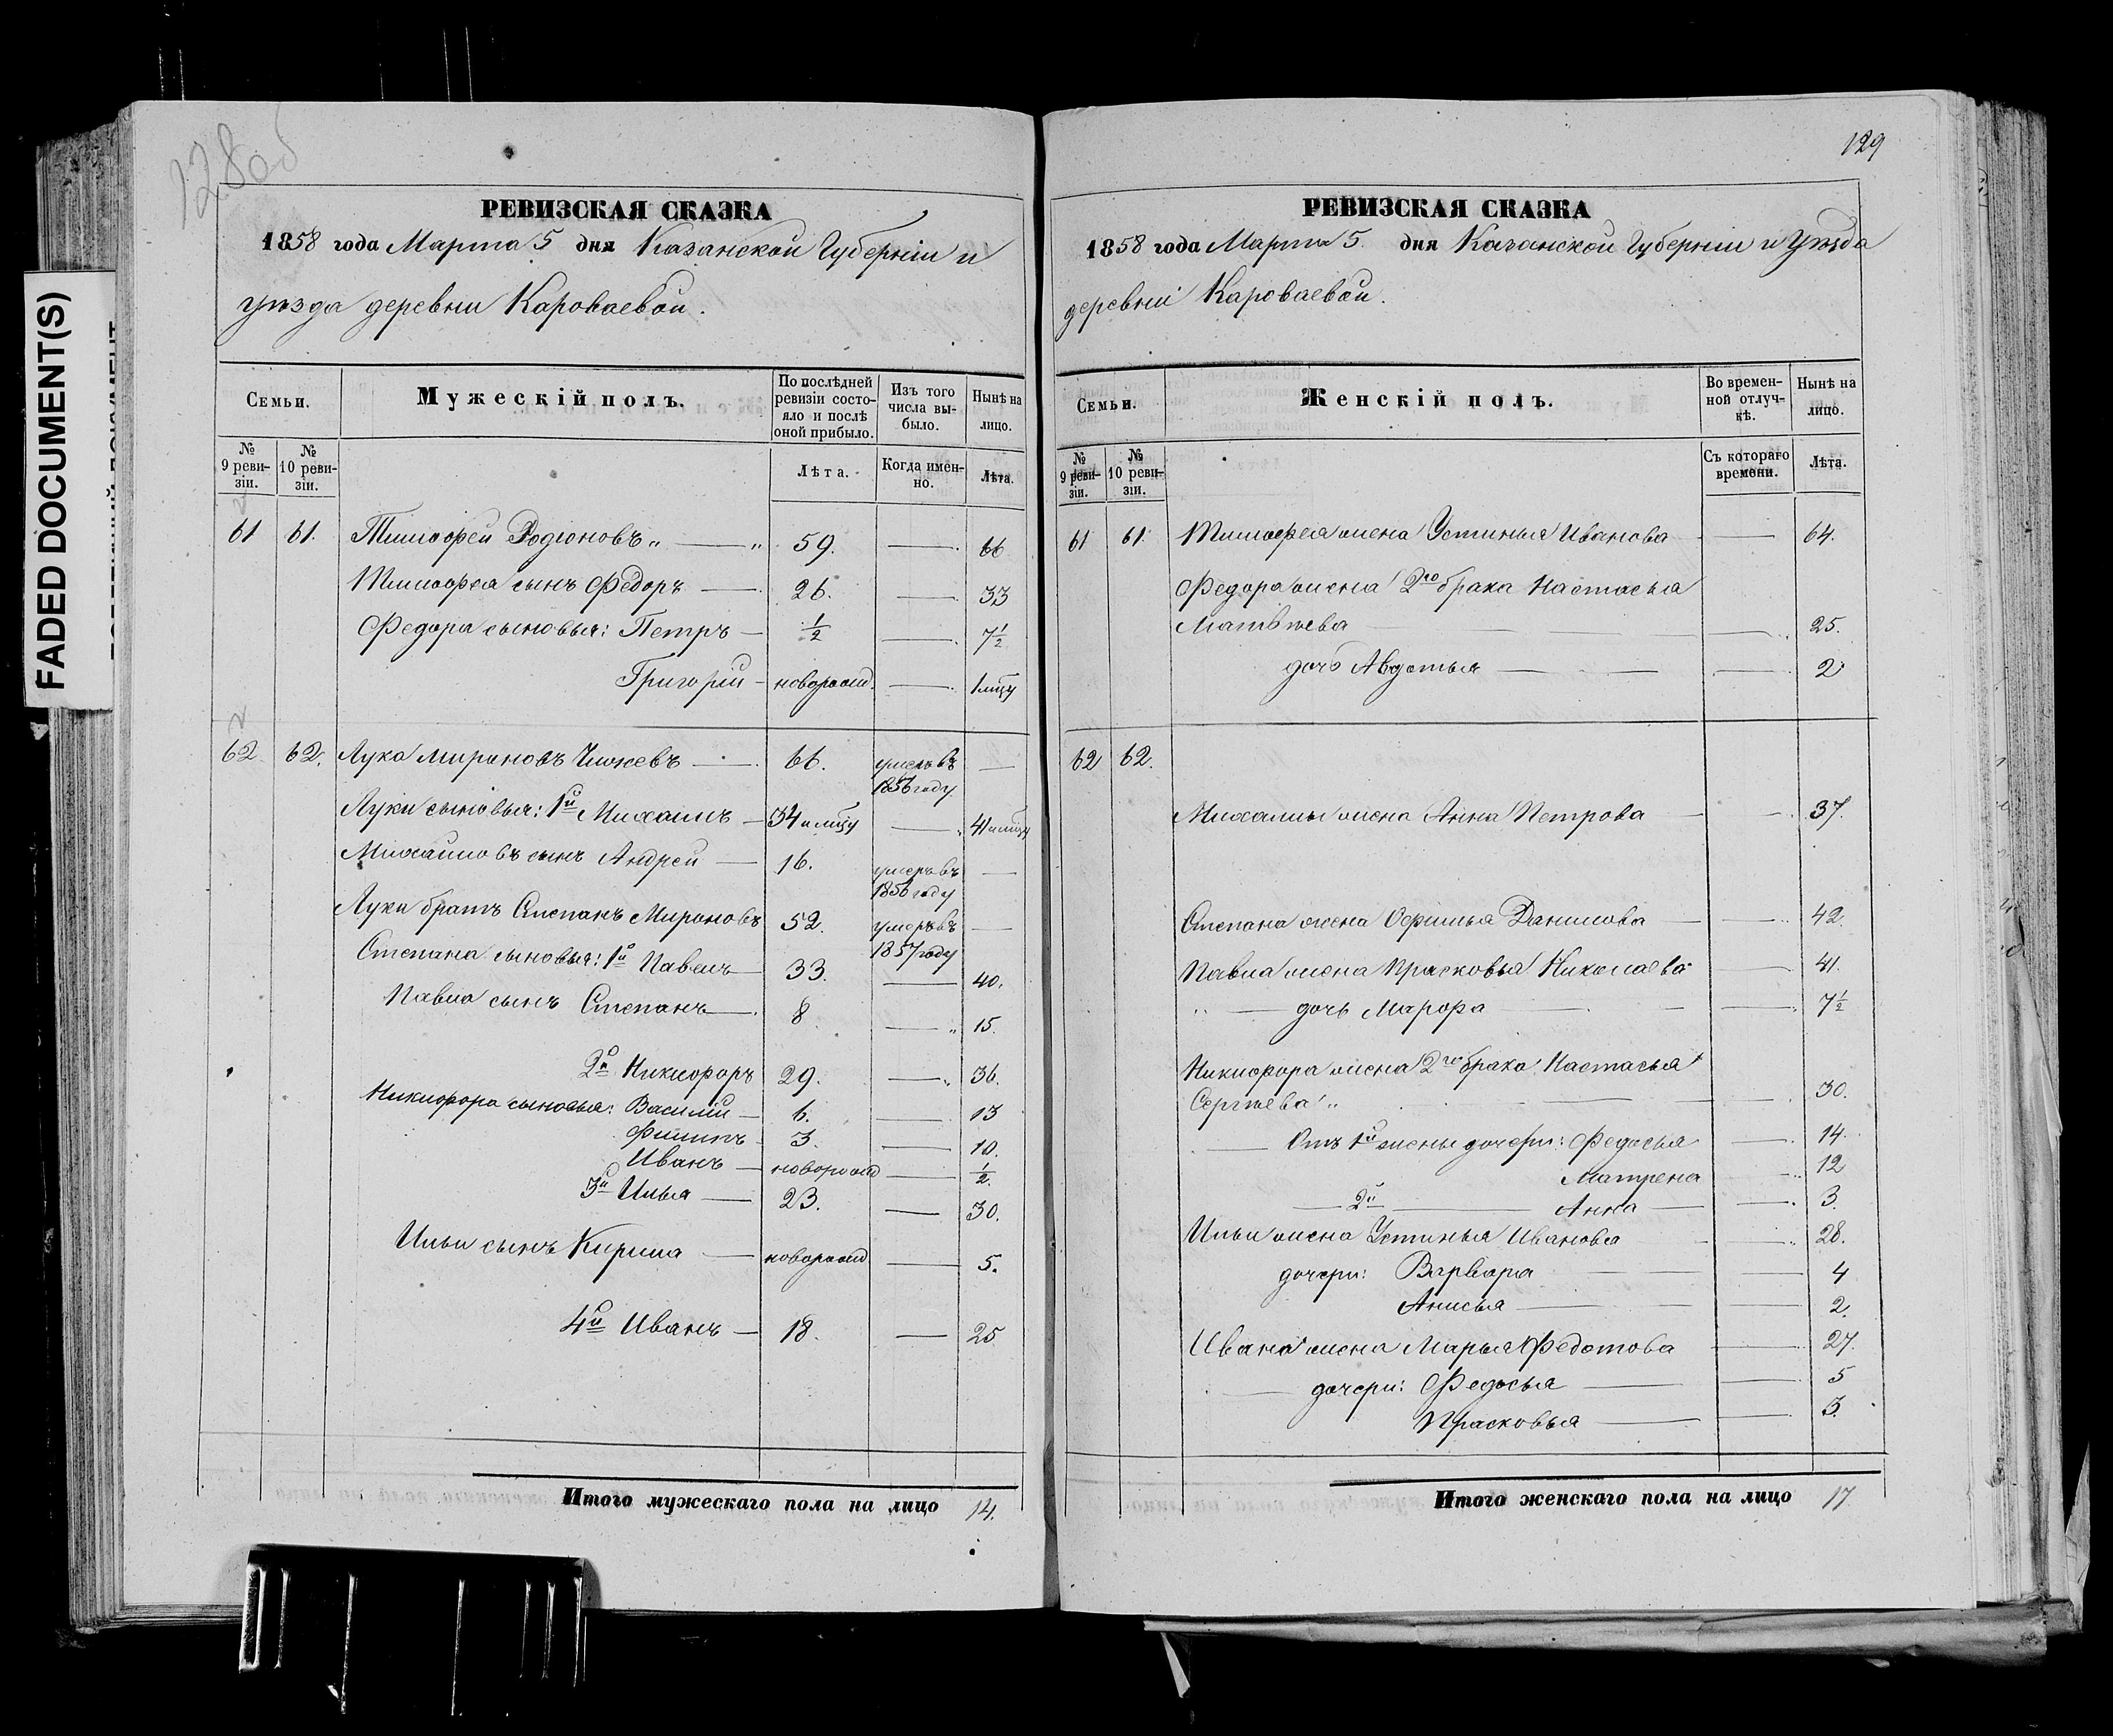 128 об
РЕВИЗСКАЯ СКАЗКА
1858 года Марта 5 дня Казанской Губерніи и
уѣзда деревни Кароваевой.
Семьи.
Мужескій полъ.
По послѣдней ревизіи состояло и послѣ оной прибыло.
Изъ того числа выбыло.
Нынѣ на лицо.
№ 9 ревизіи.
№ 10 ревизіи.
Лѣта.
Когда именно.
Лѣта.
61 61. Тимофей Родіоновъ „ — „ 59. — 66
Тимофея сынъ Федоръ — 26. — 33
Федора сыновья: Петръ — ½ — 7½
Григорій — новорожд. — 1 мцу
62 62. Лука Мироновъ — 66. умеръ въ —
1856 году
Луки сыновья: 1й Михаилъ — 34 и мцу — 41 и мцу
Михайловъ сынъ Андрей — 16. умеръ въ —
1856 году
Луки братъ Степанъ Мироновъ 52. умеръ въ —
1857 году
Степана сыновья: 1й Павелъ — 33. — 40.
Павла сынъ Степанъ — 8 — „ 15.
2й Никифоръ 29. — „ 36.
Никифора сыновья: Василій — 6. — 13
Филипъ — 3. — 10.
Иванъ — новорожд — ½.
3й Илья — 23. — 30.
Ильи сынъ Кирила — новорожд — 5.
4й Иванъ — 18. — 25
Итого мужескаго пола на лицо 14.
129
РЕВИЗСКАЯ СКАЗКА
1858 года Марта 5 дня Казанской Губерніи и Уѣзда
деревни Кароваевой.
Семьи.
Женскій полъ.
Во временной отлучкѣ.
Нынѣ на лицо.
№ 9 ревизіи.
№ 10 ревизіи.
Съ котораго времени.
Лѣта.
61 61. Тимофея жена Устинья Иванова — 64.
Федора жена 2го брака Настасья
Матвѣева — — 25.
дочь Авдотья — — 2
62 62.
Михаилы жена Анна Петрова — — 37.
Степана жена Офимья Данилова — — 42.
Павла жена Прасковья Николаева — 41.
„ — дочь Марфа — — 7½
Никифора жена 2го брака Настасья
Сергѣева „ — — 30.
— Отъ 1й жены дочери: Федосья — 14.
Матрена — 12
— 2й — Анна — — 3.
Ильи жена Устинья Иванова — 28.
дочери: Варвара — — 4
Анисья — — 2.
Ивана жена Марья Федотова — 27.
— дочери: Федосья — — 5
Прасковья — — 3.
Итого женскаго пола на лицо 17
FADED DOCUMENT(S)